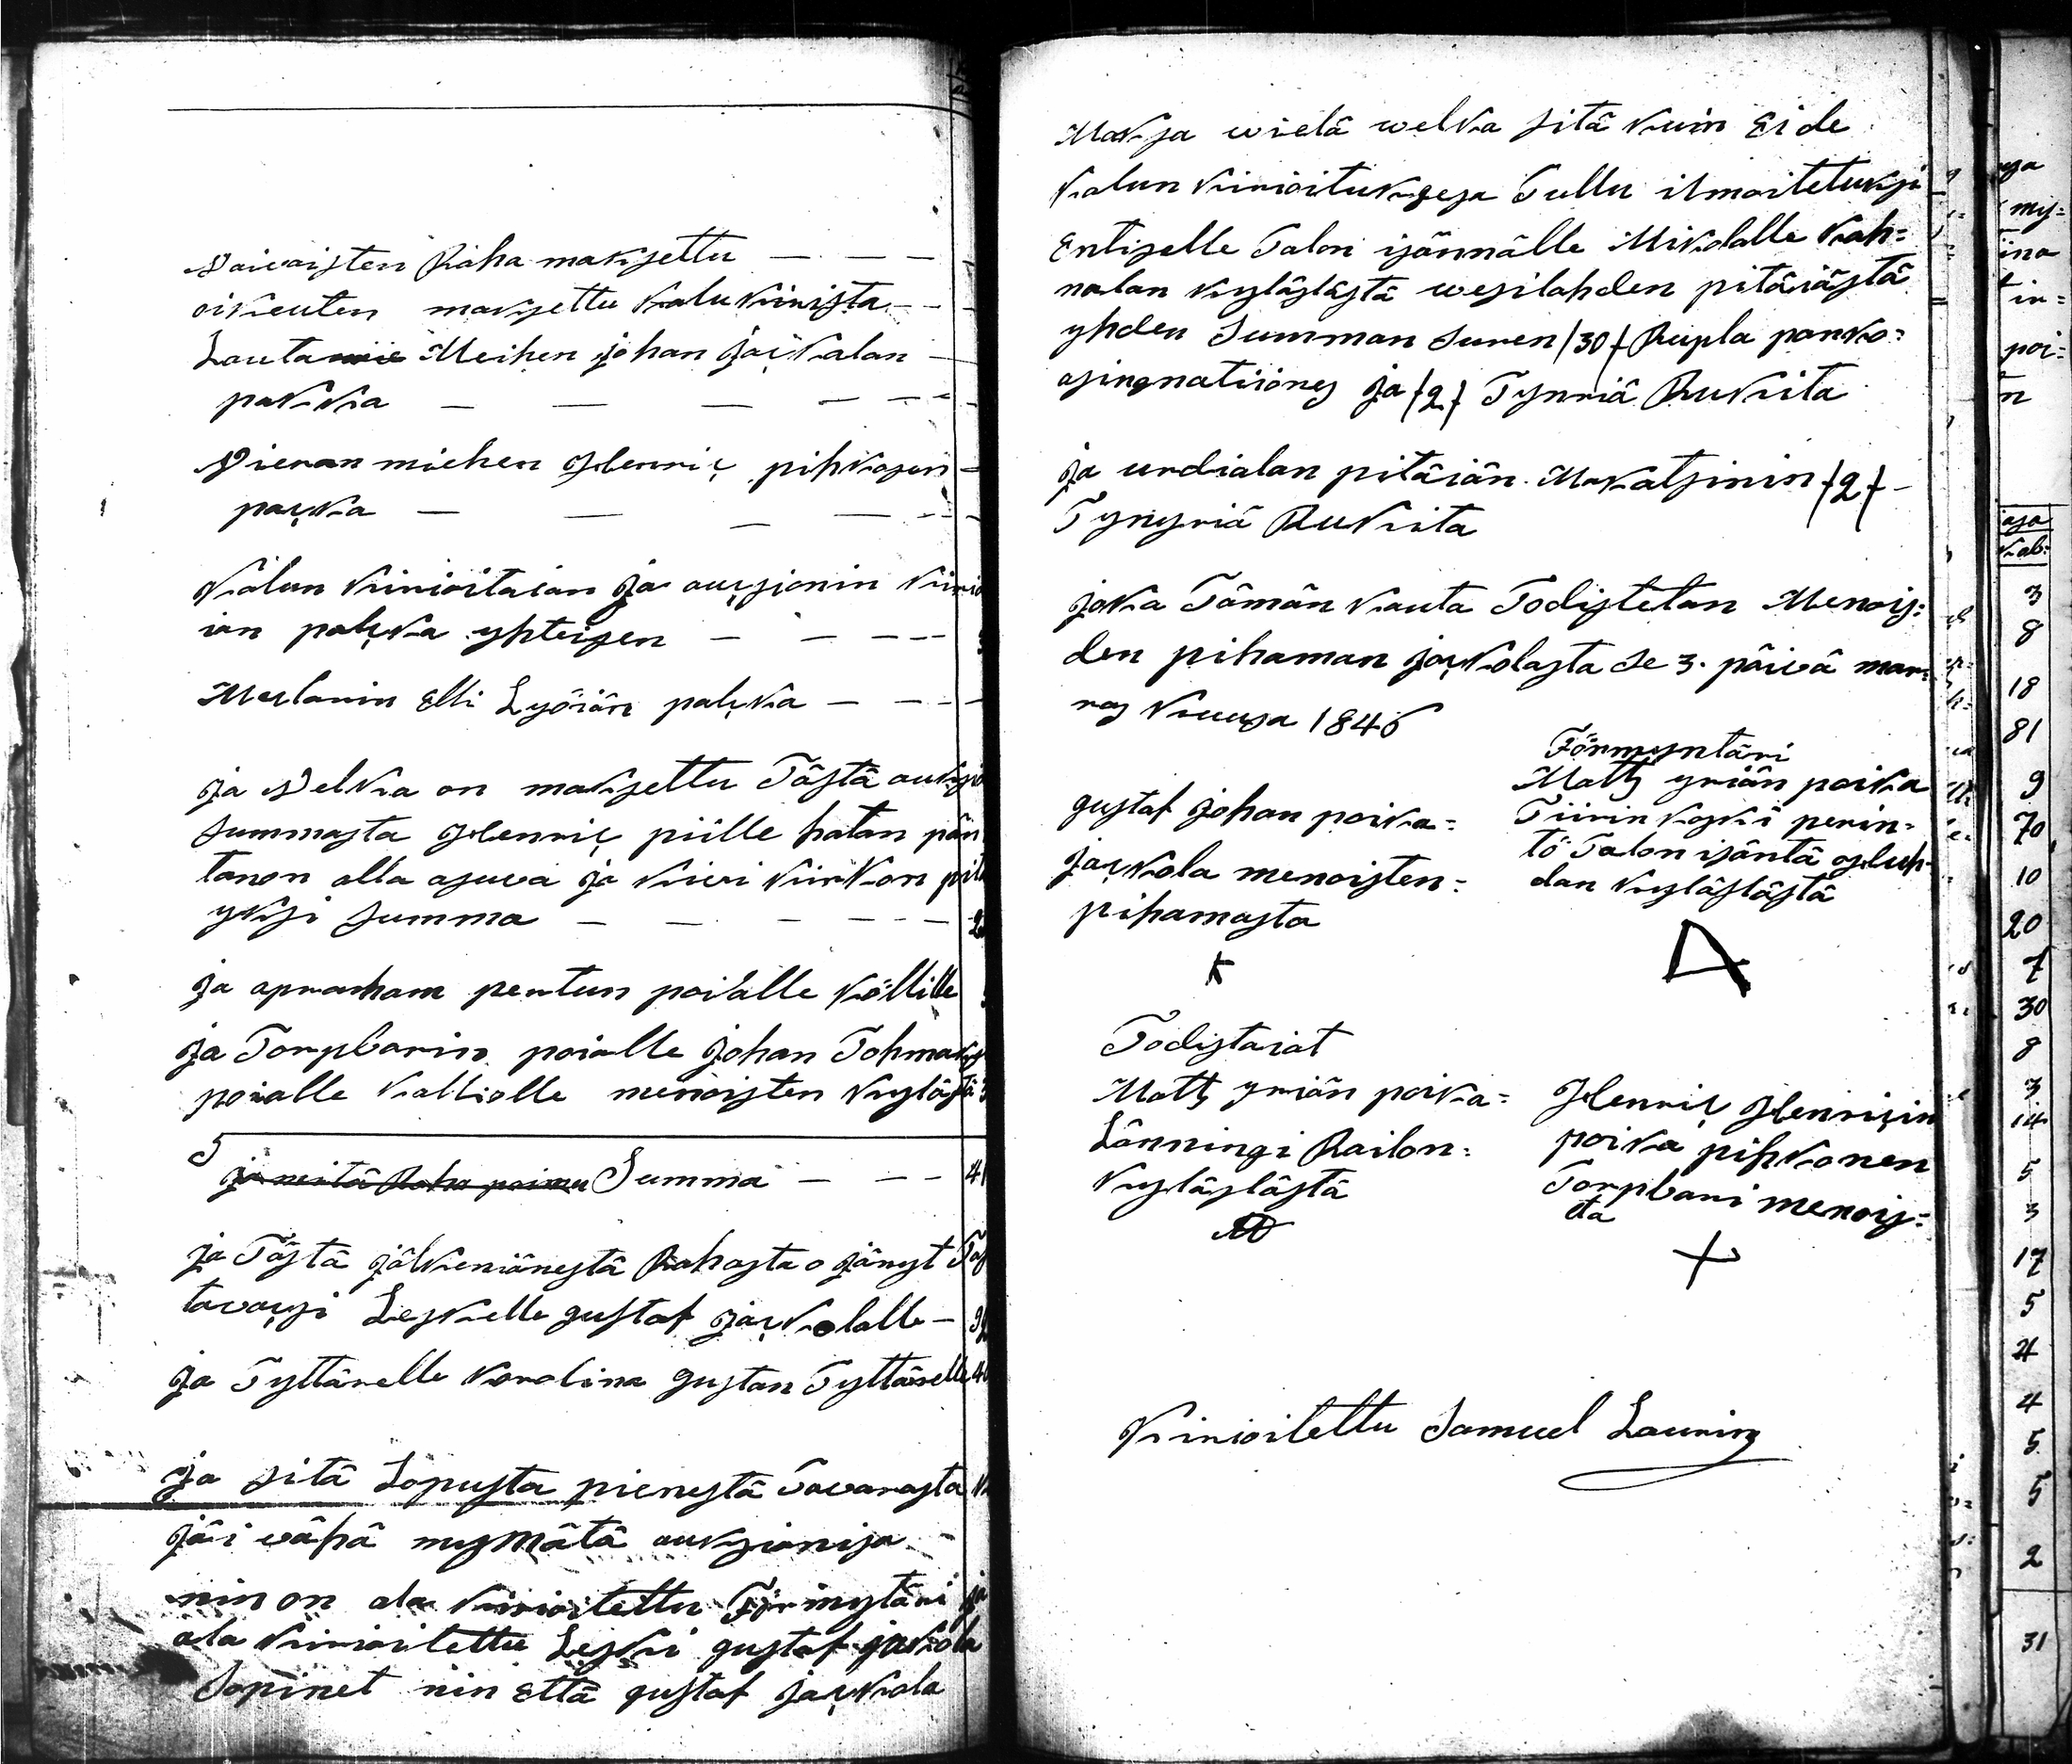 Vaivaisten Raha maksettu — — —
oikeuten maksettu kalukirista — —
Lautamie Meihen johan jaskalan —
pakka — — — — — —
Vieran miehen Henric pihkosen =
pacska — — — — —
Kalun kirioitaian ja aucsionin kirio
ian palcka yhteisen — — — —
Meslarin Elli Lyöiän palcka — — —
ja velka on maksettu Tästä auksio
summasta Henric piille hatan pän
tanon alla asuva ja kivi kirkon pitä
yksi summa — — — — — — 2
ja apraham pertun poialle källille
ja Torpbarin poialle johan Tohmaksen
poialle kalliolle menoisten kylästä
ja neitä Raha poimu Summa — — — 41
ja Tästä jälkeniänestä Rahasta o jänyt Tas
tavacsi Leskelle gustaf jackolalle —
ja Tyttärelle karolina gustan Tyttärelle
ja sitä Lopusta pienestä Tavarasta
jäi vähä mymätä auksionisa
nin on ala kirioitettu Förmytäri ja
ala kirioitettu Leski gustaf jackola
Sopinet nin Että gustaf jackola
Maksa wielä welka sitä kuin Ei de
kalun kirioituksesa Tullu ilmoitetuksi
Entiselle Talon isännälle Mikolalle kah=
nalan kyläslästä wesilahden pitäiästä
yhden summan suren /30/ Rupla panko=
asingnatiiones ja /2/ Tynriä Rukiita
ja urdialan pitäiän Makatsinin /2/ —
Tynyriä Rukiita
joka Tämän kauta Todistetan Menois=
den pihaman jackolasta se 3. päivä mar=
ras kuusa 1846
Förmyntäri
Matts yriän poika
Tiirin koski perin=
tö Talon isäntä
dan kyläslästä
gustaf johan poika =
jackola menoisten =
pihamasta
Todistaiat
Matts yriän poika =
Länningi Railon =
kyläslästä
Henric Henricin
poika pihkonen
Torpbari menois=
ta
Kirioitettu Samuel Laurin
ysa
my=
ina
in=
poi=
n
iasa
kab:
3
8
18
81
9
70
10
20
7
30
8
3
14
5
3
17
5
4
4
5
5
2
31